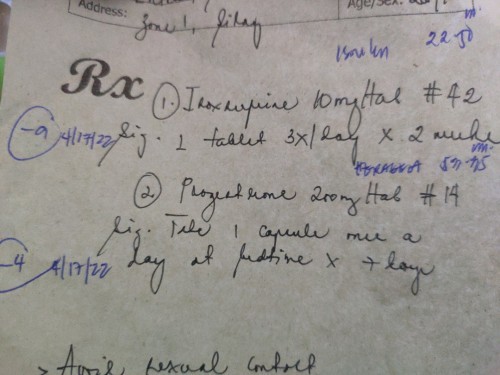 Address: Age/Sex:
Zone 1,
22.50
Rx
1. Isoxsuprine 10mg/tab #42
-9 4/17/22 Sig. 1 tablet 3x/day x 2 weeks
2. Progesterone 200mg/tab #14
Sig. Take 1 capsule once a
-4 4/17/22 day at bedtime x 7 days
> Avoid sexual contact